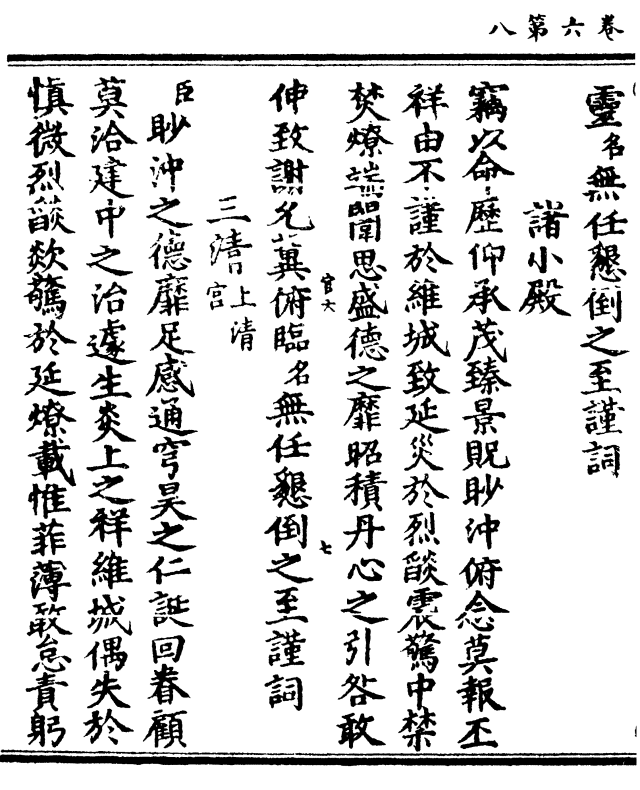 卷六第八
靈名無任懇倒之至謹詞
諸小殿
竊以命歷仰承茂臻景貺眇沖俯念莫報丕
祥由不謹於維城致延災於烈燄震驚中禁
焚燎端闈思盛德之靡昭積丹心之引咎敢
伸致謝允冀俯臨名無任懇倒之至謹詞
官大
七
三清上清宮
臣眇沖之德靡足感通穹昊之仁誕回眷顧
莫洽建中之治遽生炎上之祥維城偶失於
慎微烈燄歘驚於延燎載惟菲薄敢怠責躬